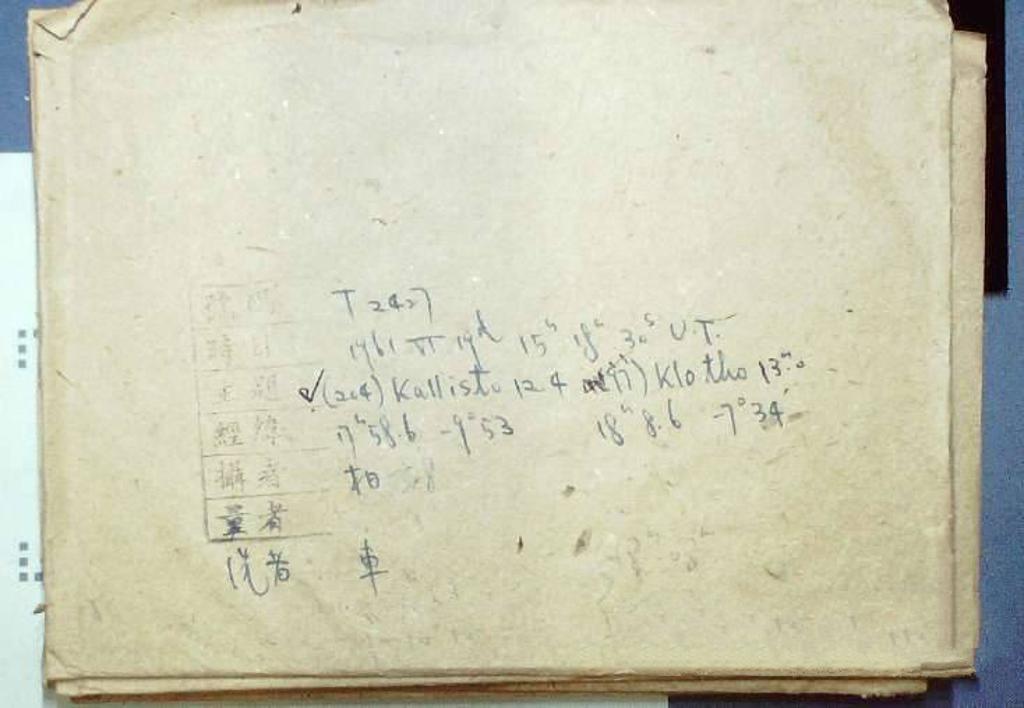 號碼 T 2427
時日 1961 VI 19ᵈ 15ʰ 18ᵐ 30ˢ U.T.
主題 ✓(204) Kallisto 12.4 (97) Klotho 13ᵐ.0
經緯 17ʰ58.6 -9°53 18ʰ 8.6 -7°34'
攝者 柏
量者
洗者 車